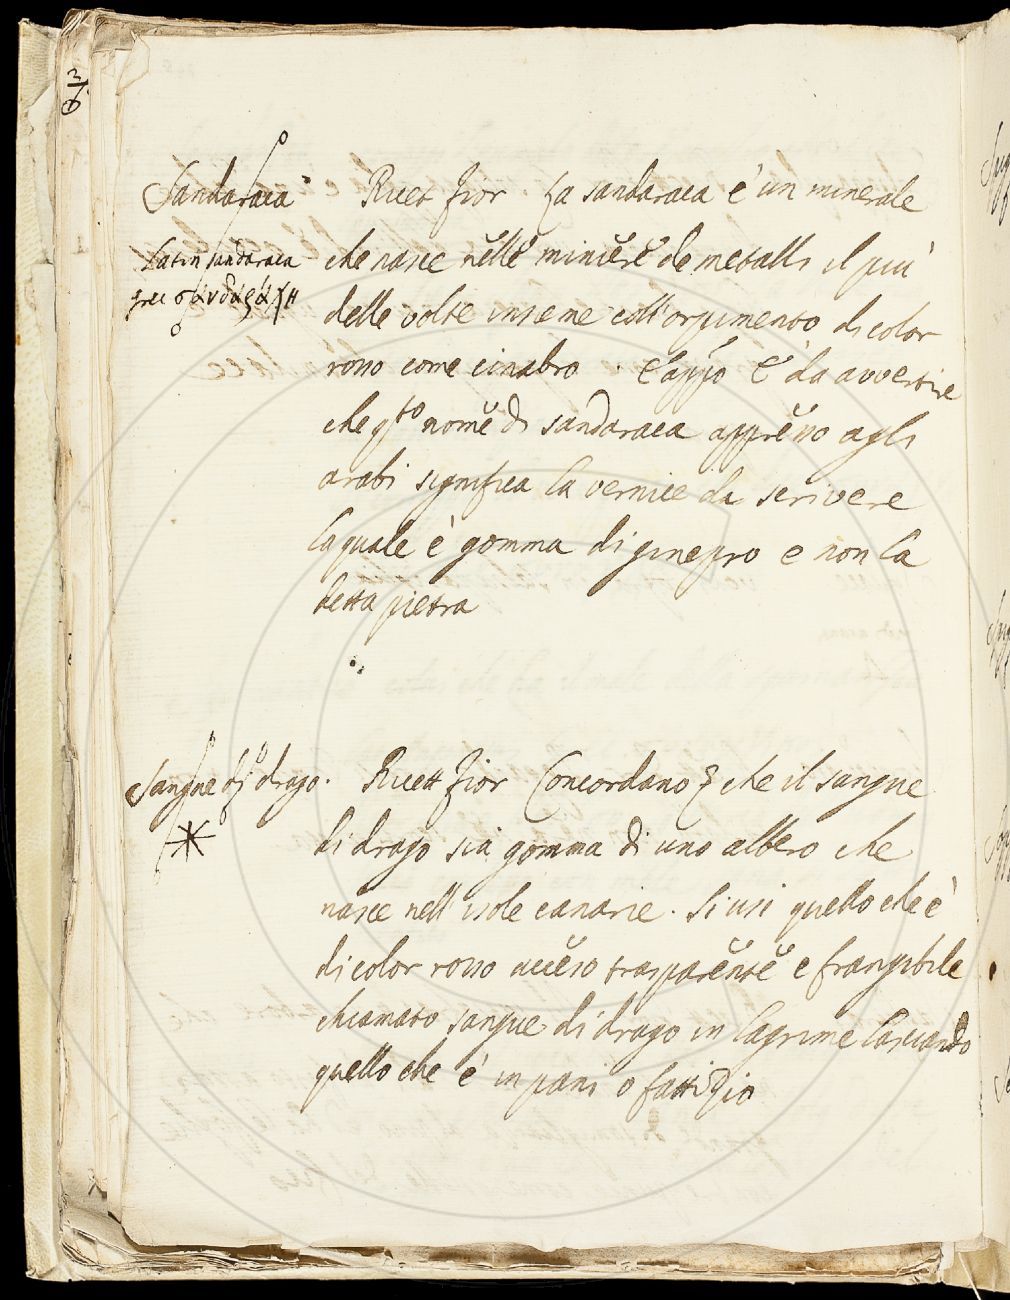 Sandaraca
Latin sandaraca
grec σανδαραχη
Ricet fior La sandaraca è un minerale
che nasce nelle miniere de metalli il più
delle volte insieme coll'orpimento di color
rosso come cinabro. è da avvertire
che qto nome di sandaraca appresso agli
arabi significa la vernice da scrivere
la quale è gomma di ginepro e non la
detta pietra
Sangue di drago.
Ricett fior Concordano che il sangue
di drago sia gomma di uno albero che
nasce nell' isole canarie. Si usi quello che è
di color rosso acceso trasparente e frangibile
chiamato sangue di drago in lagrime lasciando
quello che è in pani o fattizio